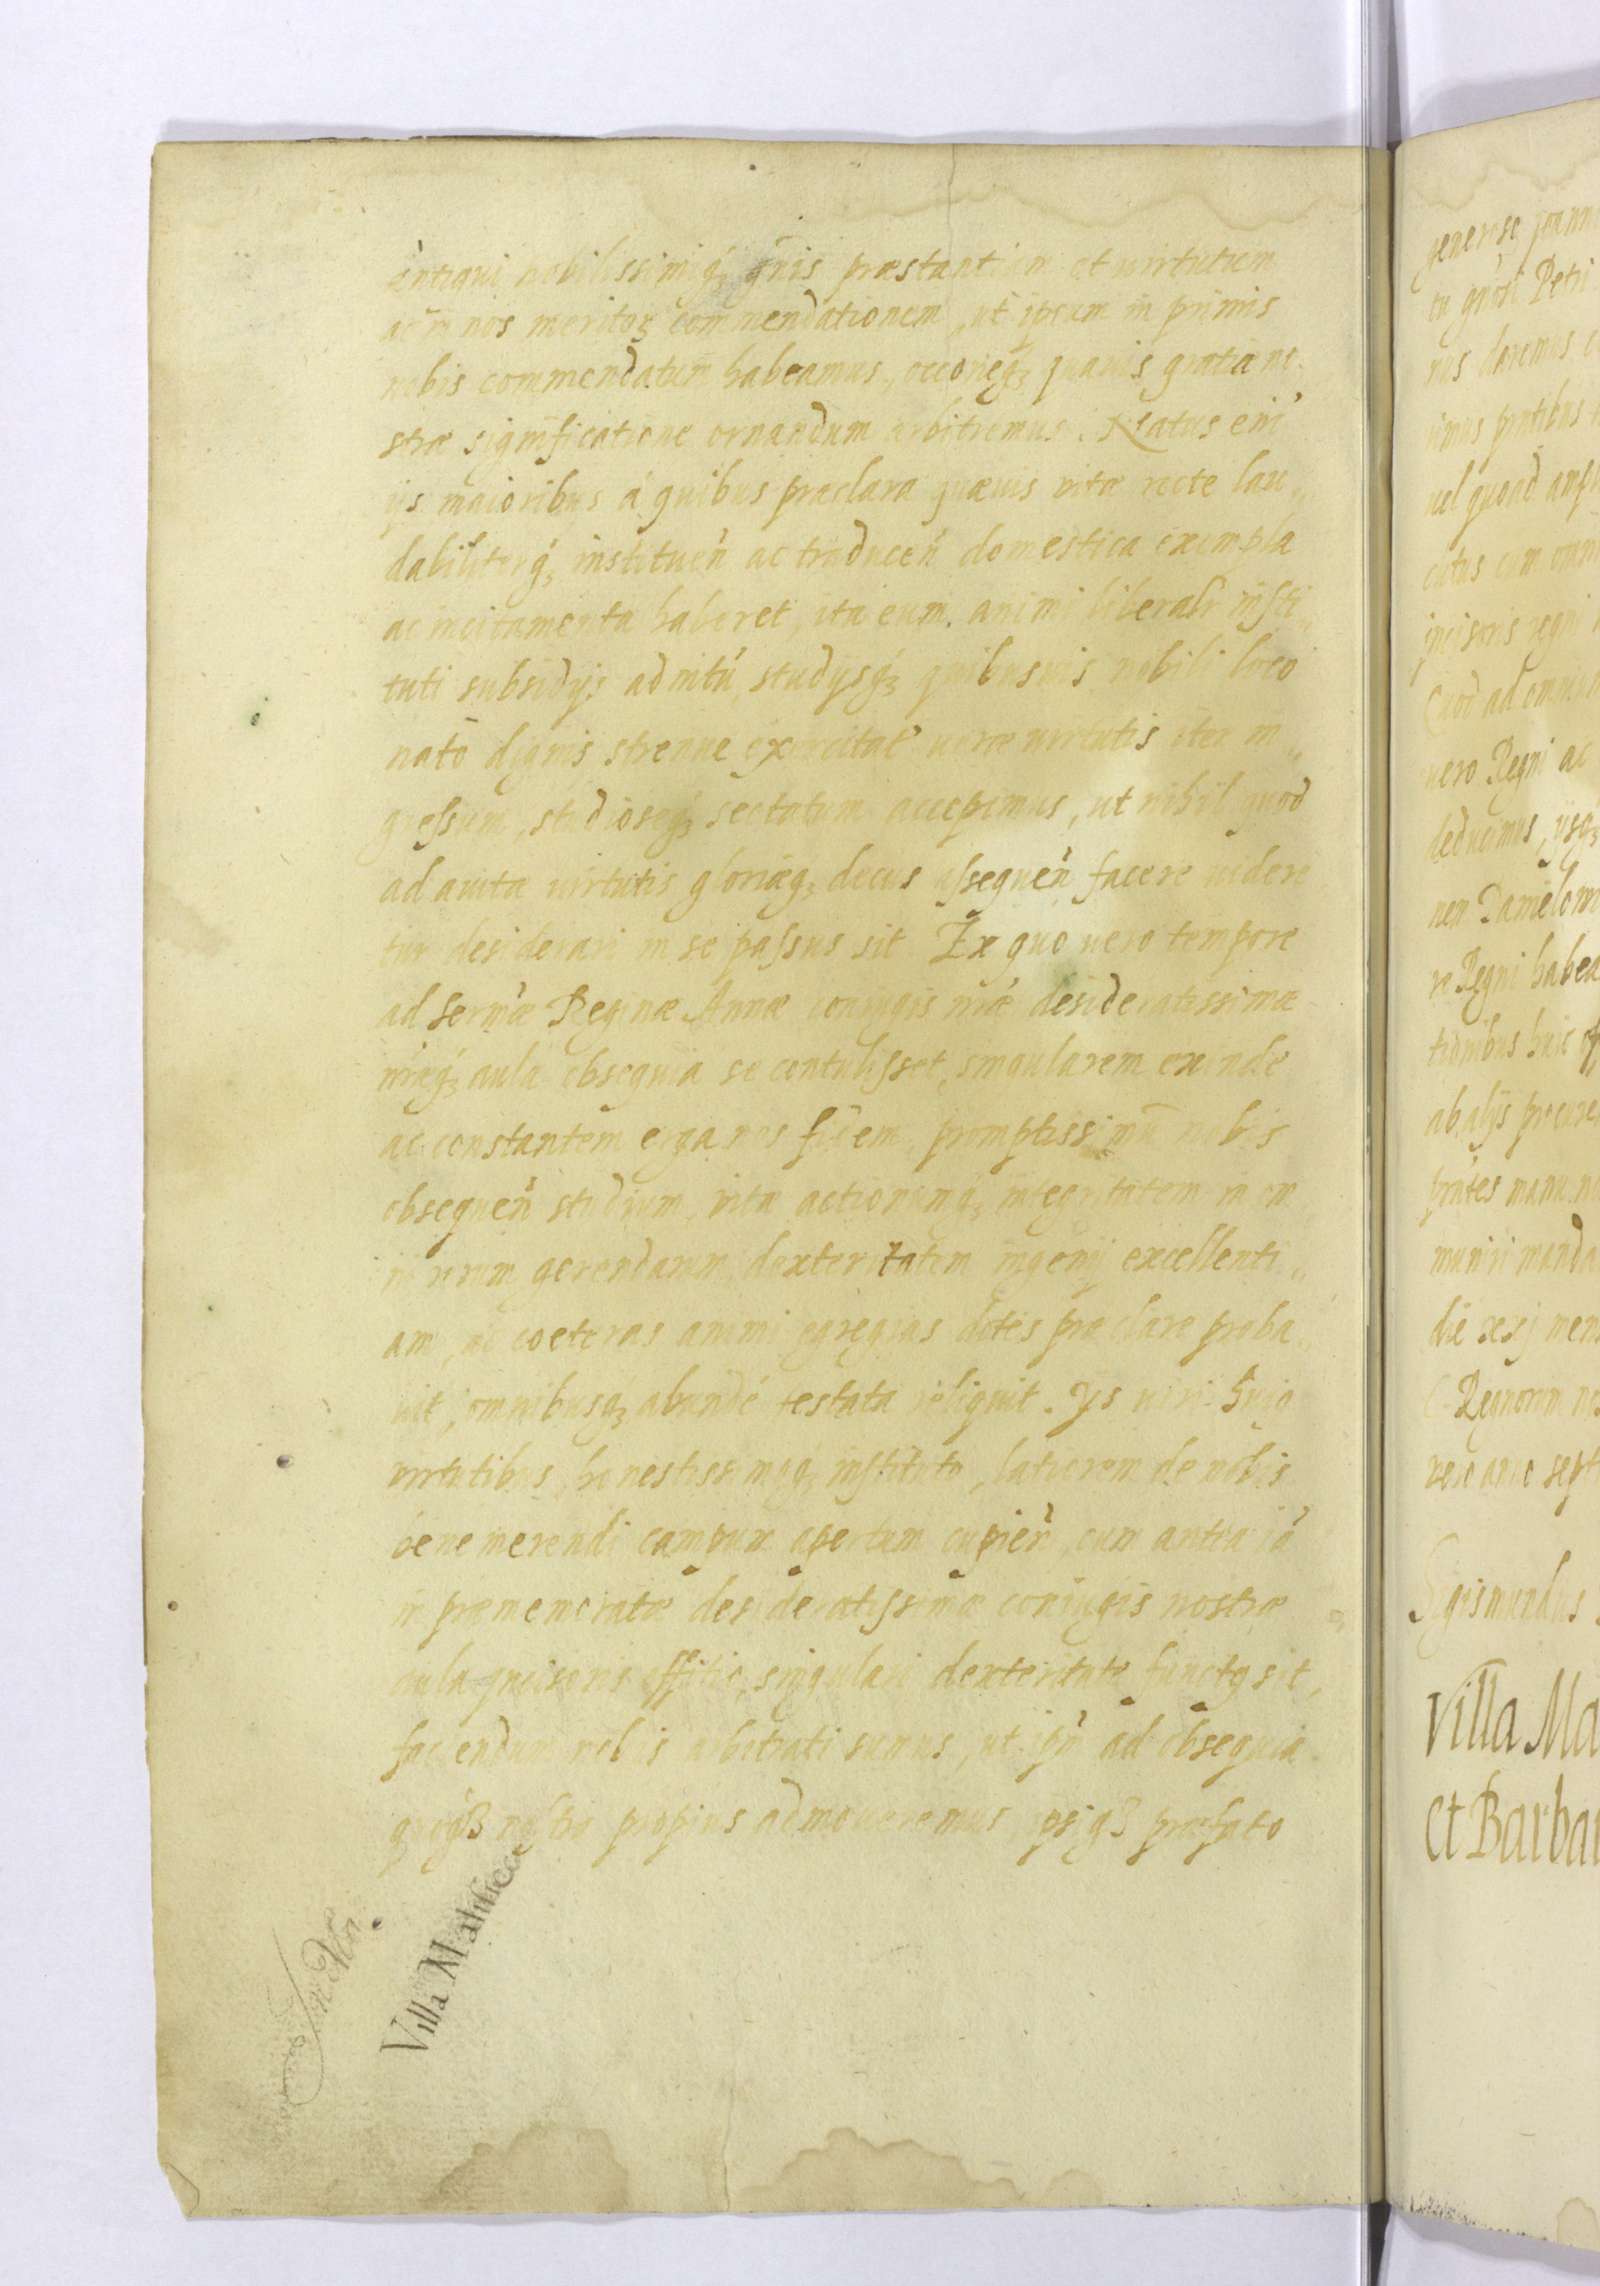 antiqui nobilissimiq́ꝫ gñis præstantiam et virtutum
ac in nos meritoꝝ commendationem, ut ipsum in primis
nobis commendatum habeamus, occoneq́ꝫ quauis gratiæ no„
stræ significatione ornandum arbitremur. Natus eni᷃
ijs maioribus á quibus præclara quæuis vitæ recte lau„
dabiliterq́ꝫ instituen̄ ac traducen̄ domestica exempla
ac incitamenta haberet, ita eum animi liberalr insti„
tuti subsidijs adnitú, studijsq́ꝫ quibusuis nobili loco
nato dignis strenue exercitat ueræ virtutis iter in„
gressum, studioseq́ꝫ sectatum accepimus, ut nihil quod
ad auitæ virtutis gloriæq́ꝫ decus assequen̄ facere videre
tur desiderari in se passus sit. Ex quo uero tempore
ad Sermæ Reginæ Annæ coniugis nr̄æ desideratissimæ
nr̄æq́ꝫ aulæ obsequia se contulisset, singularem exinde
ac constantem erga nos fidem promptissimū nobis
obsequen̄ studium, vitæ actionumq́ꝫ integritatem in om
ni rerum gerendarum dexteritatem ingenij excellenti„
am, ac coeteras animi egregias dotes præclare proba„
uit, omnibusq́ꝫ abundé testata reliquit. Ijs viri huio
virtutibus, honestissimoq́ꝫ instituto, latiorem de nobis
bene merendi campum apertum cupien̄, cum antea iā
in prænemoratæ desideratissimæ coniugis nostræ
aula incisoris offitio, singulari dexteritate functꝰ sit,
faciendum nobis arbitrati sumus, ut ipm̄ ad obsequia
quoqꝫ nostra propius admoueremus, ipsiqꝫ præfato
Villa Mabilicca
generose Joann
tu gnōsi Petri
rus daremus c
rimus pntibus
uel quoad ampl
ciitus cum omni
incisoris regni
Quod ad omnium
uero Regni ac
deducimus, ijsq́ꝫ
nen Danielem
re Regni habea
tionibus huic of
ab alijs procure
pr̄ntes manu n
muniri manda
die xxj mens
Regnorum nos
vero anno sept
Sigismundus
Villa Ma
et Barbar